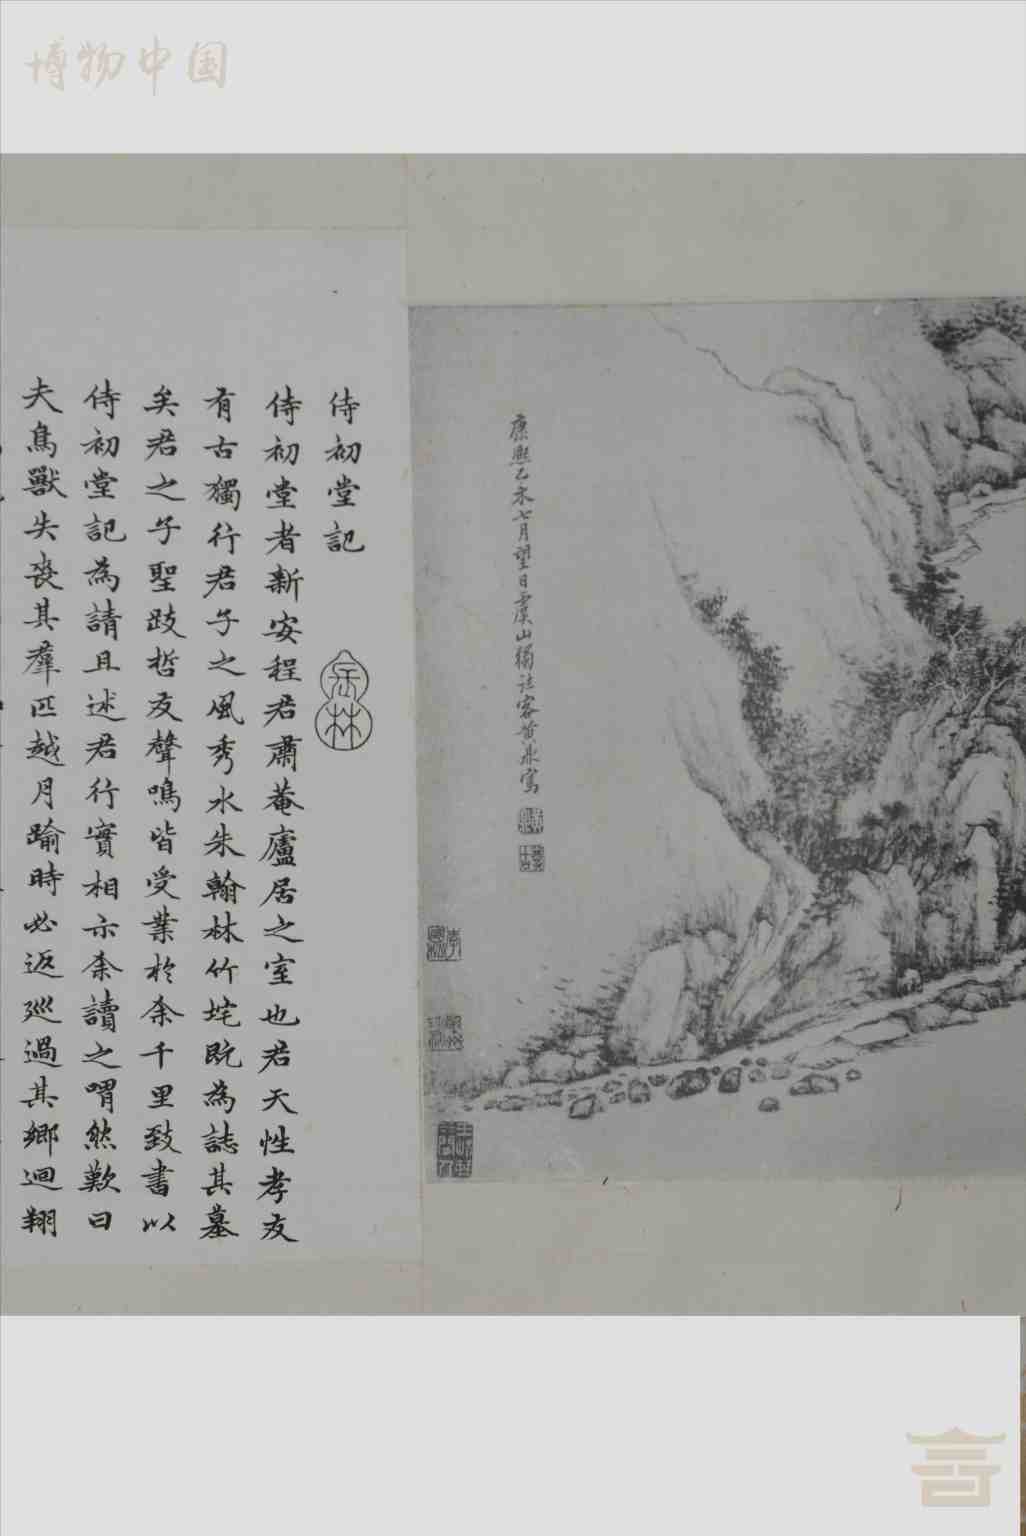 博物中国
康熙乙未七月望日虞山獨往客黃鼎寫
侍初堂記
侍初堂者新安程君肅菴廬居之室也君天性孝友
有古獨行君子之風秀水朱翰林竹垞既為誌其墓
矣君之子聖跂哲友聲鳴皆受業於余千里致書以
侍初堂記為請且述君行實相示余讀之喟然歎曰
夫鳥獸失喪其羣匹越月踰時必返巡過其鄉迴翔